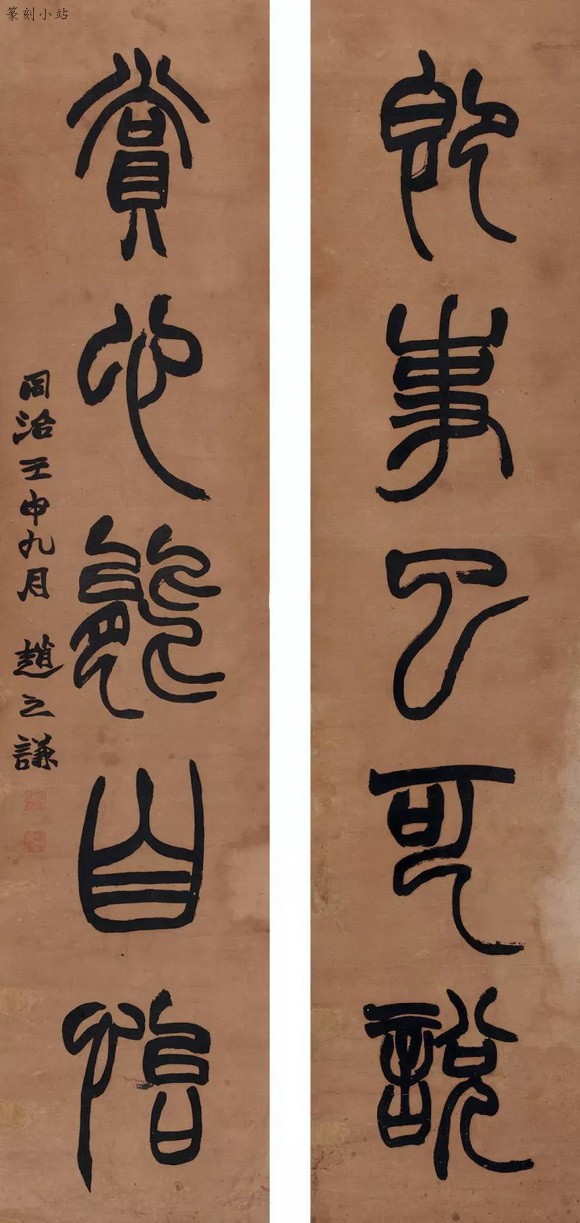 篆刻小站
即事已可說
賞心能自怡
同治壬申九月 趙之謙